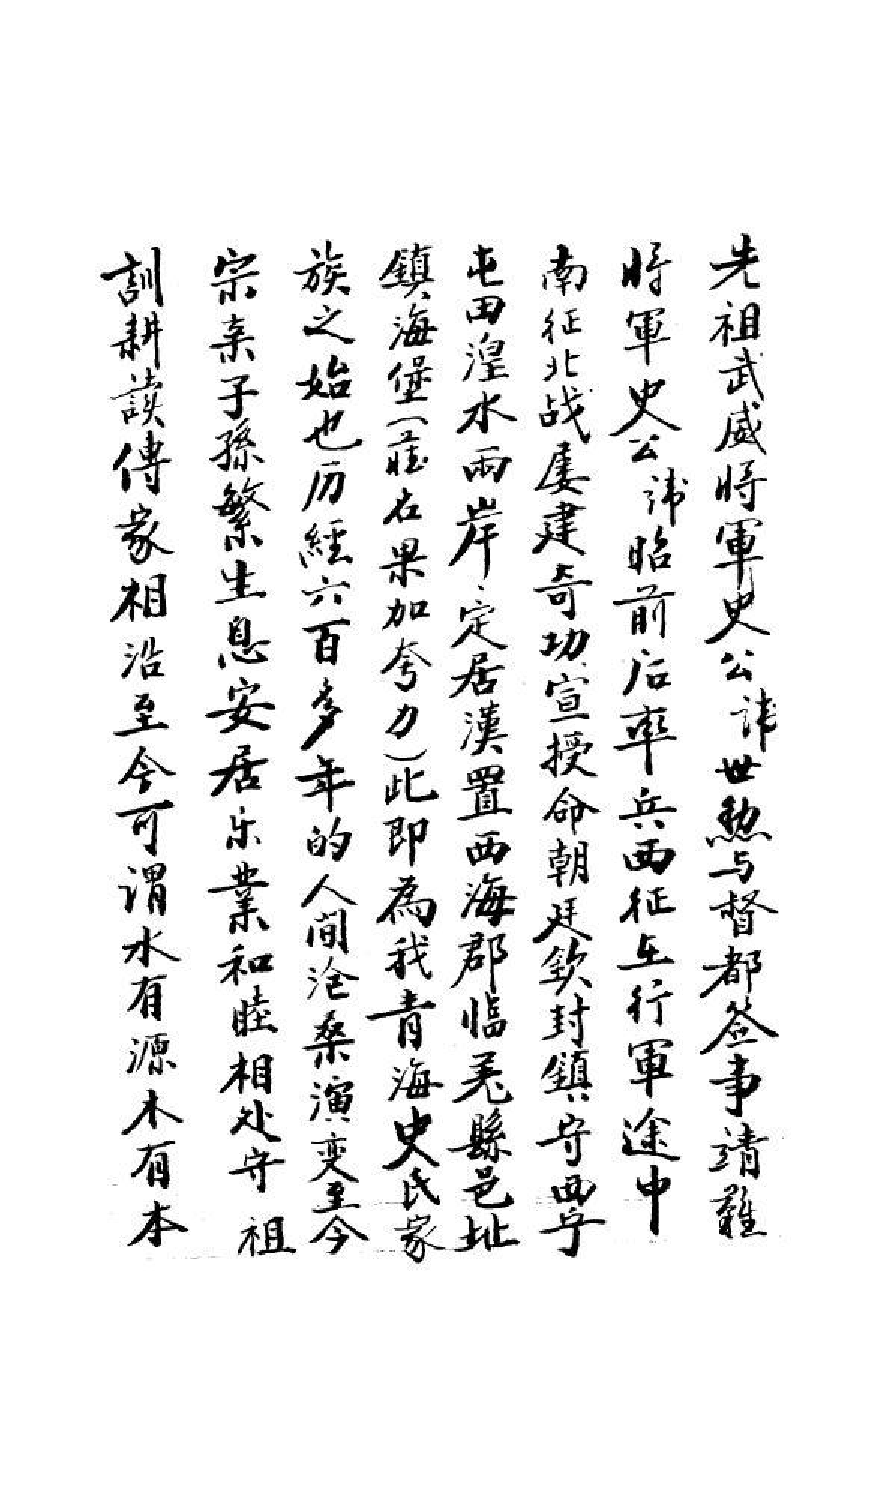 先祖武威將軍史公諱世勲与督都签事靖難
將軍史公諱昭前后率兵西征在行軍途中
南征北战屡建奇功宣授命朝廷欽封鎮守西宁
屯田湟水兩岸定居漢置西海郡臨羌縣邑址
鎮海堡(莊名果加夸力)此即為我青海史氏家
族之始也历經六百多年的人间沧桑演变至今
宗亲子孫繁生息安居乐業和睦相处守祖
訓耕讀傳家相沿至今可谓水有源木有本